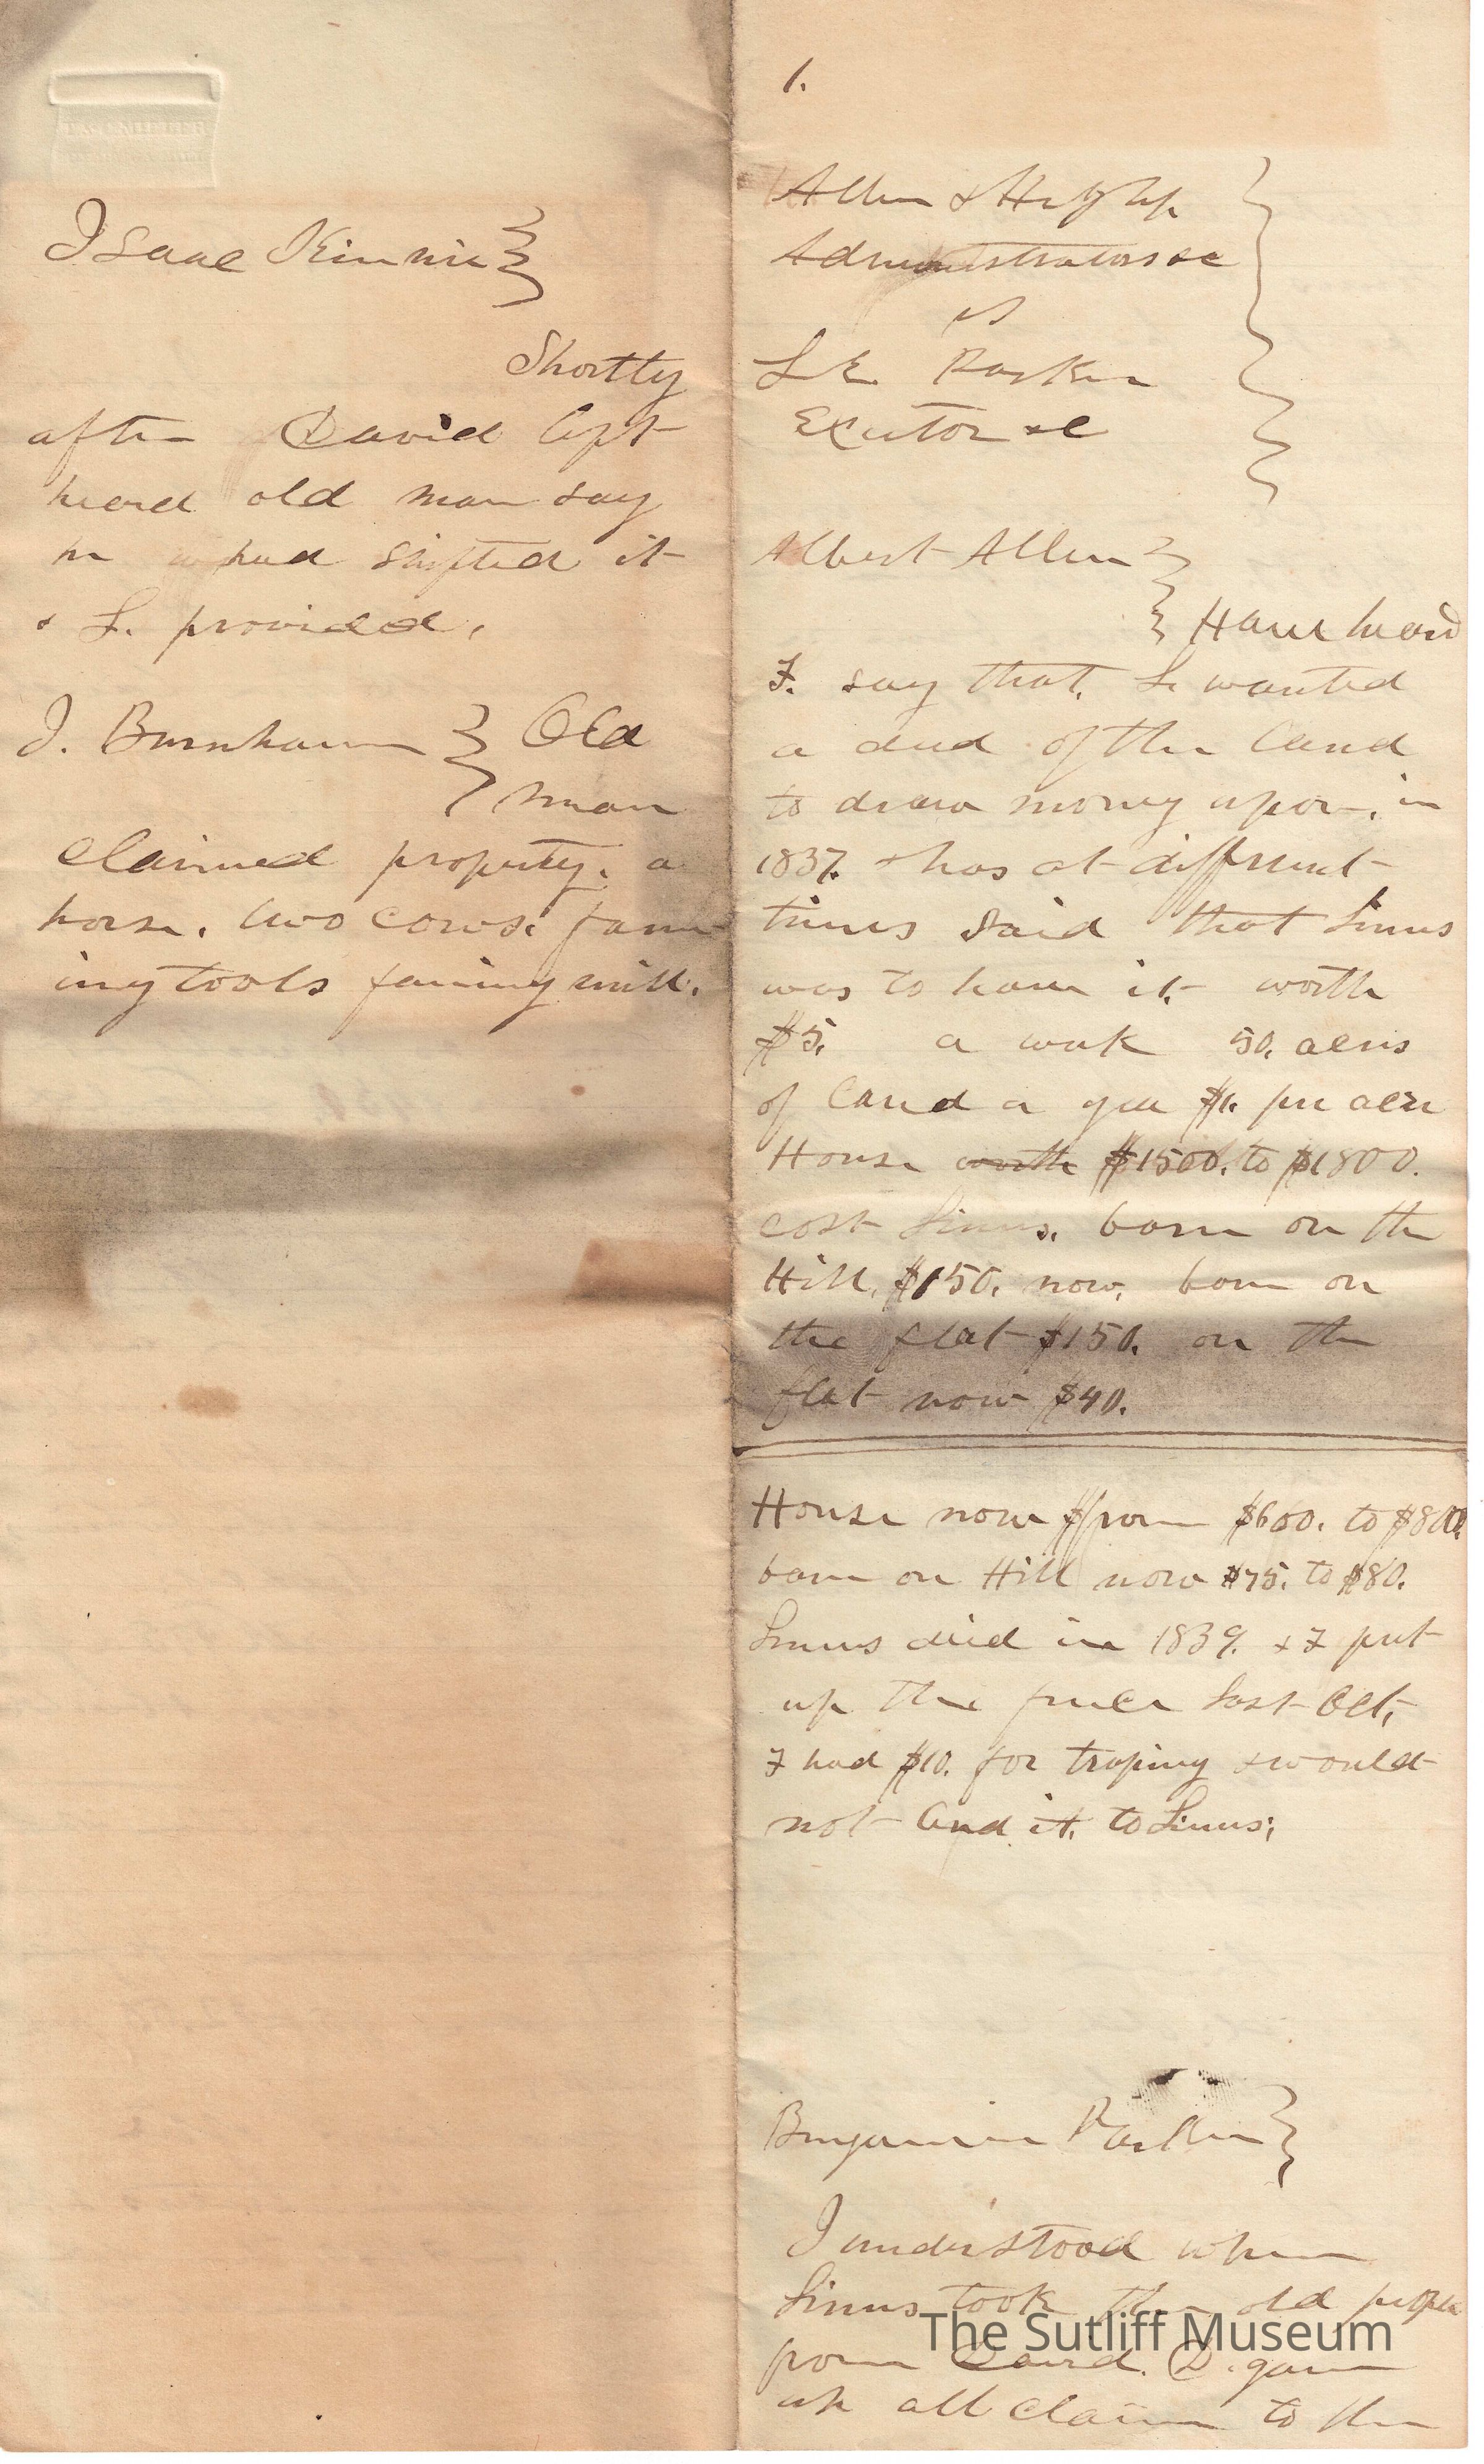 Isaac Kinnie
Shortly
after David left
heard old man say
he had shifted it
& L. provided,
J. Burnham } Old
man
claimed property. a
horse. two cows. farm
ing tools faning mill.
1.
Allen &
Administrators &c
vs
L E Parker
Excutor &c
Albert Allen
Have heard
F. say that, L. wanted
a deed of the land
to draw money upon, in
1837. & has at different
times said that Linus
was to have it. worth
$5. a week 50. acres
of land a year $1. per acre
House worth $1500. to $1800.
cost Linus. barn on the
Hill, $150. now, barn on
the flat $150. on the
flat now $40.
House now from $600. to $800.
barn on Hill now $75. to $80.
Linus died in 1839. & F put
up the fence last Oct,
F had $10. for traping & would
not lend it. to Linus;
Benjamin Parker
I understood when
Linus took the old people
from David. D. gave
up all claim to the
The Sutliff Museum